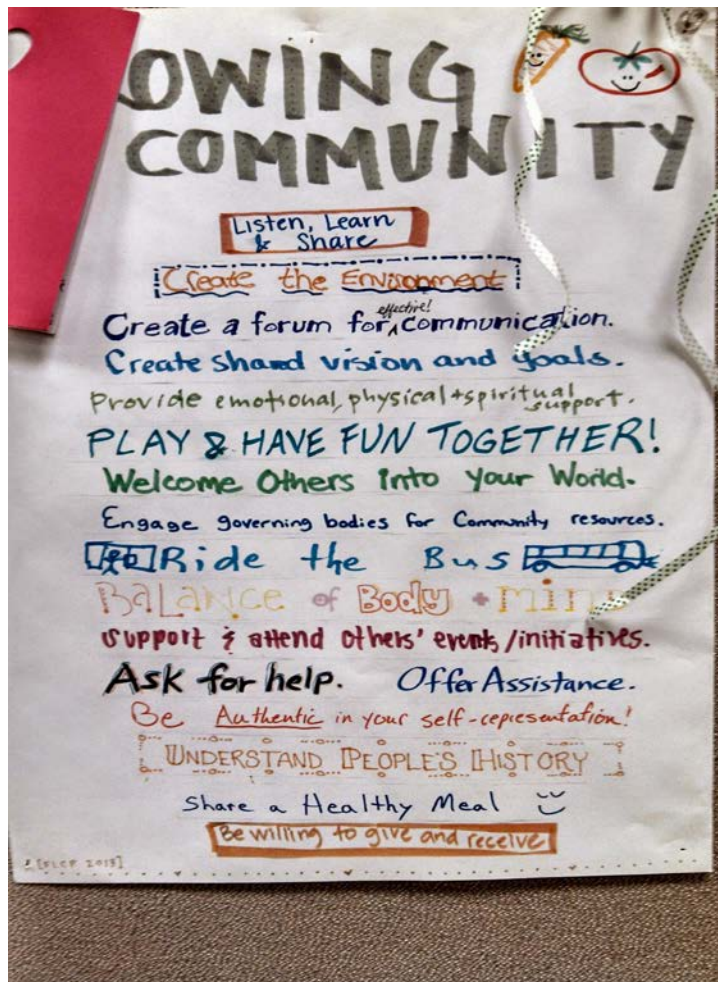 OWING
COMMUNITY
Listen, Learn
& Share
Create the Environment
effective!
Create a forum for ^ communication.
Create shared vision and goals.
Provide emotional, physical + spiritual
support.
PLAY & HAVE FUN TOGETHER!
Welcome Others into your World.
Engage governing bodies for Community resources.
Ride the Bus
BALANCE of Body + mind
support & attend others' events/initiatives.
Ask for help. Offer Assistance.
Be Authentic in your self-representation!
UNDERSTAND PEOPLE'S HISTORY
Share a Healthy Meal
Be willing to give and receive
[FLCP 2013]